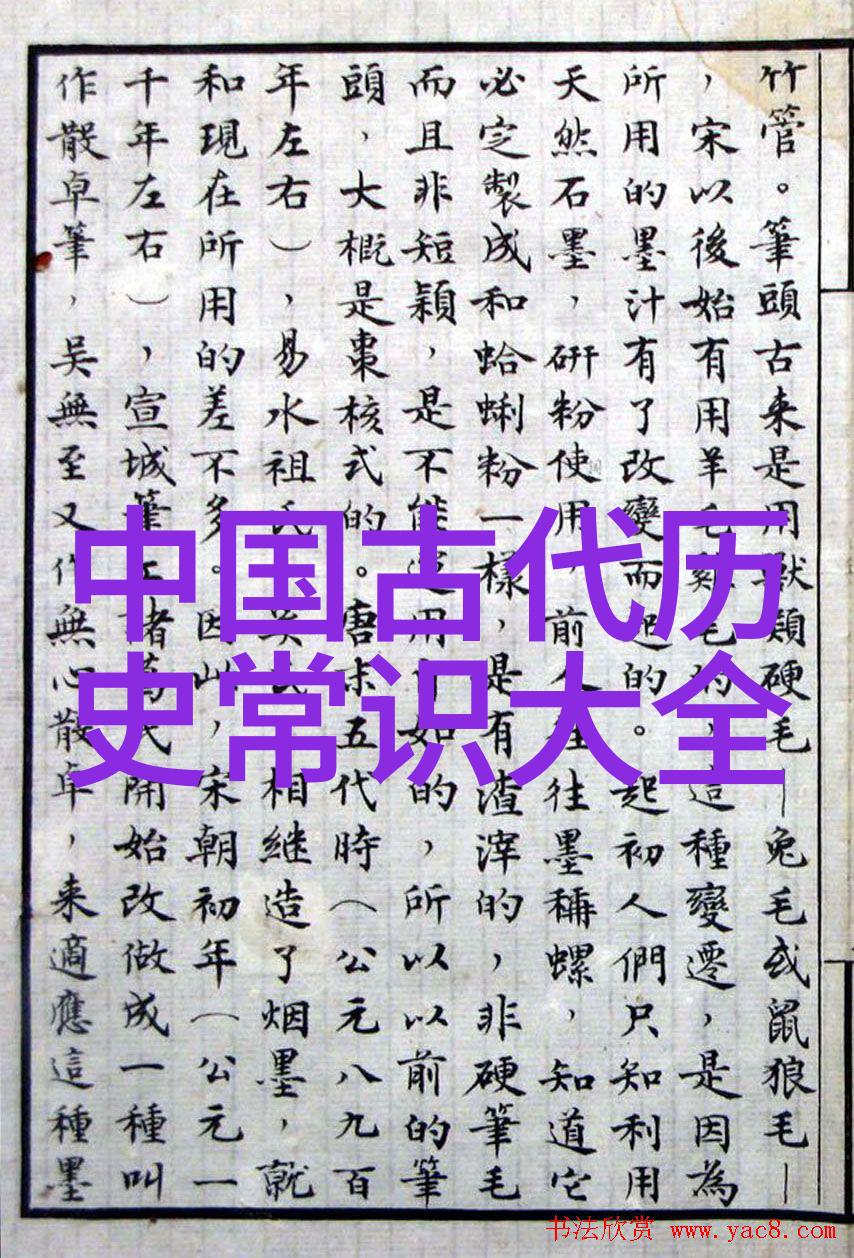 竹管。筆頭古来是用獸類硬毛—兔毛或鼠狼毛—
，宋以後始有用羊毛雞毛的，這種變遷，是因為
所用的墨汁有了改變而起的。起初人們只知利用
天然石墨，研粉使用，前人往往墨稱螺，知道它
必定製成和蛤蜊粉一樣，是有渣滓的，非硬筆毛
而且非短穎，是不能運用自如的，所以以前的筆
頭，大概是棗核式的。唐末五代時（公元八九百
年左右），易水祖氏奚氏相继造了烟墨，就
和現在所用的差不多。因此，宋朝初年（公元一
千年左右），宣城筆工諸葛氏開始改做成一種叫
作散卓筆，吴無至又作無心散卓，来適應這種墨
中国古代历
史常识大全
书法欣赏 www.yac8.com